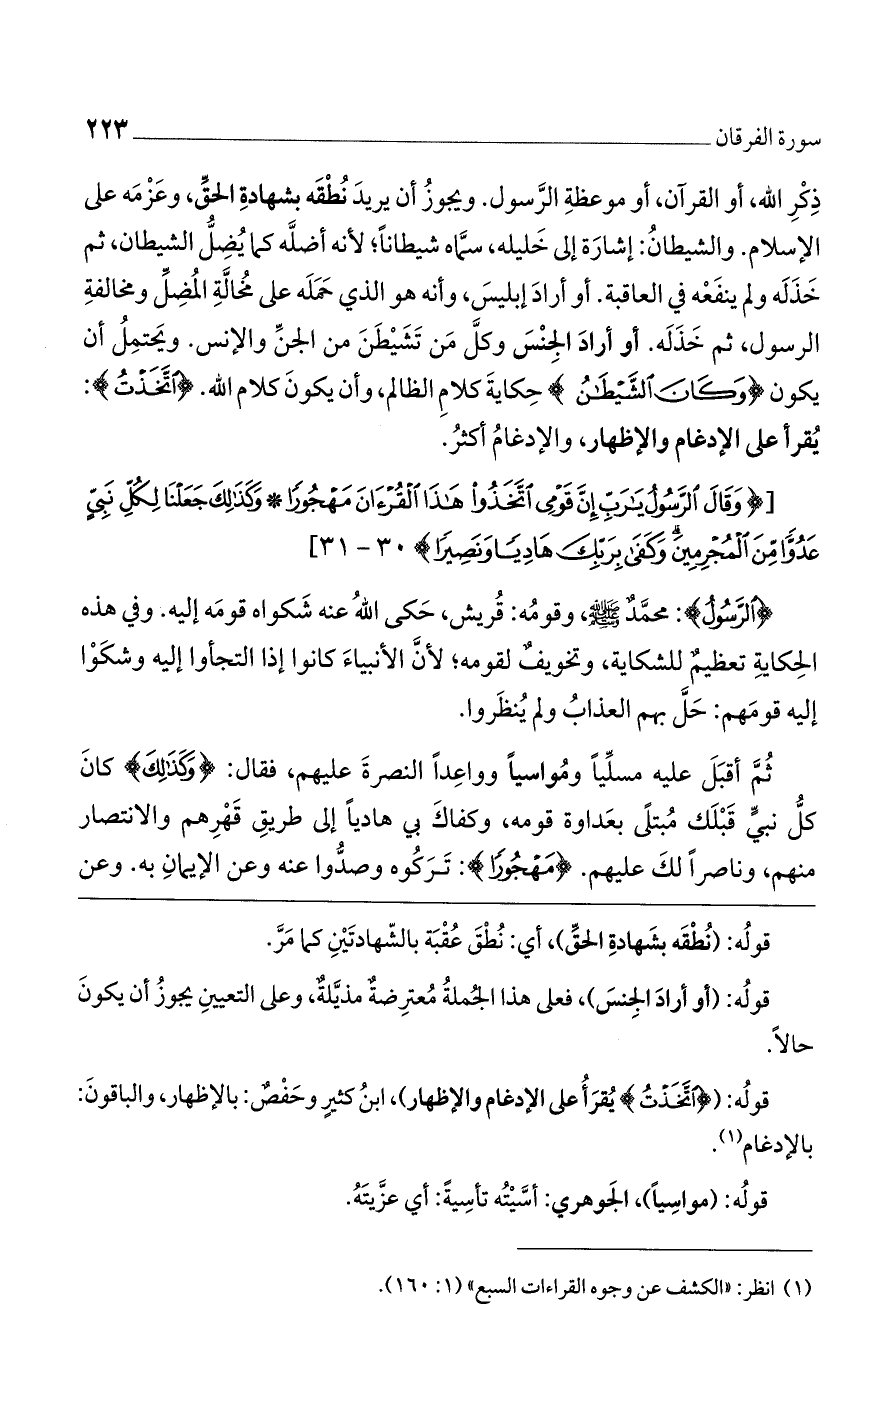 سورة الفرقان ٢٢٣
ذِكْرِ الله، أو القرآن، أو موعظةِ الرَّسول. ويجوزُ أن يريدَ نُطْقَه بشهادةِ الحقِّ، وعَزْمَه على
الإسلام. والشيطانُ: إشارَة إلى خَليله، سمَّاه شيطاناً؛ لأنه أضلَّه كما يُضِلُّ الشيطان، ثم
خَذَلَه ولم ينفَعْه في العاقبة. أو أرادَ إبليسَ، وأنه هو الذي حَمَلَه على مُخالَّةِ المُضِلِّ ومخالفةِ
الرسول، ثم خَذَلَه. أو أرادَ الجِنْسَ وكلَّ مَن تَشَيْطَنَ من الجنِّ والإنس. ويَحتمِلُ أن
يكون ﴿وَكَانَ ٱلشَّيْطَـٰنُ﴾ حِكايةَ كلامِ الظالم، وأن يكونَ كلام الله. ﴿ٱتَّخَذْتُ﴾:
يُقرأ على الإدغام والإظهار، والإدغامُ أكثرُ.
[﴿وَقَالَ ٱلرَّسُولُ يَـٰرَبِّ إِنَّ قَوْمِى ٱتَّخَذُوا۟ هَـٰذَا ٱلْقُرْءَانَ مَهْجُورًا * وَكَذَٰلِكَ جَعَلْنَا لِكُلِّ نَبِىٍّ
عَدُوًّا مِّنَ ٱلْمُجْرِمِينَ ۗ وَكَفَىٰ بِرَبِّكَ هَادِيًا وَنَصِيرًا﴾ ٣٠ - ٣١]
﴿ٱلرَّسُولُ﴾: محمَّدٌ ﷺ، وقومُه: قُريش، حَكى اللهُ عنه شَكواه قومَه إليه. وفي هذه
الحِكايةِ تعظيمٌ للشكاية، وتخويفٌ لقومه؛ لأنَّ الأنبياءَ كانوا إذا التجأوا إليه وشكَوْا
إليه قومَهم: حَلَّ بهم العذابُ ولم يُنظَروا.
ثُمَّ أقبَلَ عليه مسلِّياً ومُواسياً وواعِداً النصرةَ عليهم، فقال: ﴿وَكَذَٰلِكَ﴾ كانَ
كلُّ نبيٍّ قَبْلَك مُبتلًى بعَداوة قومه، وكفاكَ بي هادياً إلى طريقِ قَهْرِهم والانتصار
منهم، وناصراً لكَ عليهم. ﴿مَهْجُورًا﴾: تَـرَكُوه وصدُّوا عنه وعن الإيمانِ به. وعن
قولُه: (نُطْقَه بشَهادةِ الحقِّ)، أي: نُطْقَ عُقْبَة بالشّهادتَيْنِ كما مَرَّ.
قولُه: (أو أرادَ الجِنسَ)، فعلى هذا الجُملةُ مُعترِضةٌ مذيَّلةٌ، وعلى التعيينِ يجوزُ أن يكونَ
حالاً.
قولُه: (﴿ٱتَّخَذْتُ﴾ يُقرَأُ على الإدغامِ والإظهار)، ابنُ كثيرٍ وحَفْصٌ: بالإظهار، والباقونَ:
بالإدغام(١).
قولُه: (مواسِياً)، الجَوهري: أسَّيْتُه تأسِيةً: أي عزَّيتَهُ.
(١) انظر: «الكشف عن وجوه القراءات السبع» (١: ١٦٠).